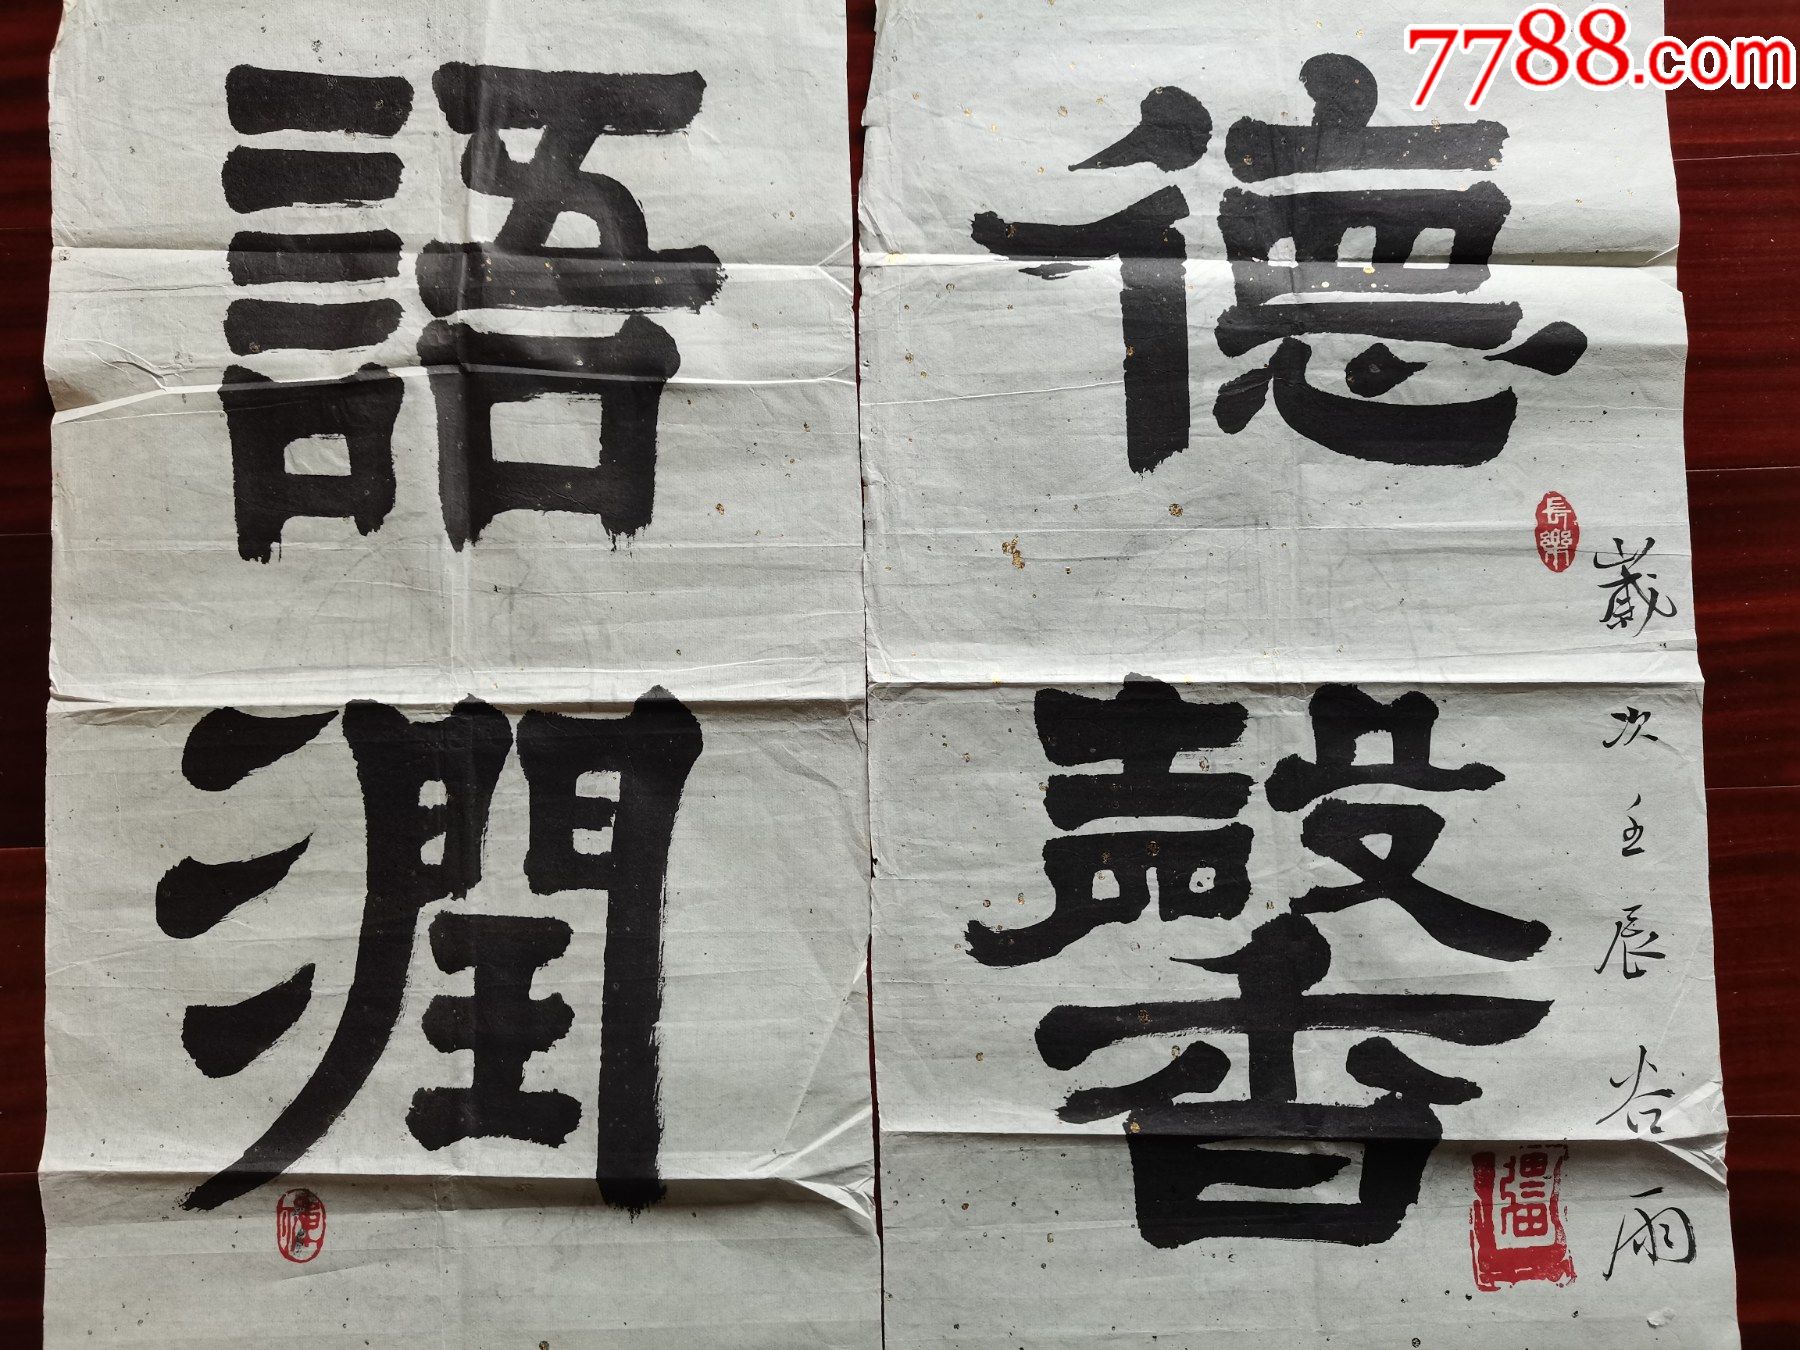 7788.com
德馨
長樂
歲次壬辰谷雨
語潤